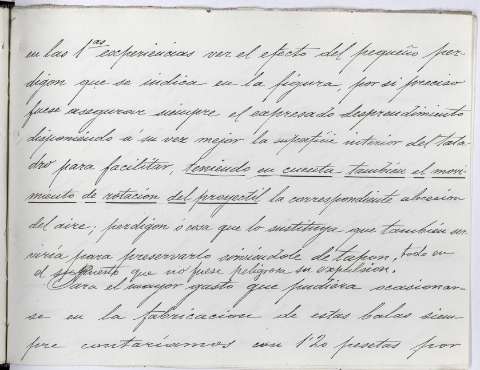 en las 1.as experiencias ver el efecto del pequeño per-
digon que se indica en la figura, por si preciso
fuese asegurar siempre el expresado desprendimiento
disponiendo á su vez mejor la superficie interior del tala-
dro para facilitar, teniendo en cuenta tambien el movi-
miento de rotacion del proyectil la correspondiente abrasion
del aire; perdigon o cosa que lo sustituya que tambien ser-
viria para preservarlo sirviéndole de tapon, todo en
el supuesto que no fuese peligrosa su expulsion.
Para el mayor gasto que pudiera ocasionar-
se en la fabricacion de estas balas siem-
pre contariamos con 1'20 pesetas por